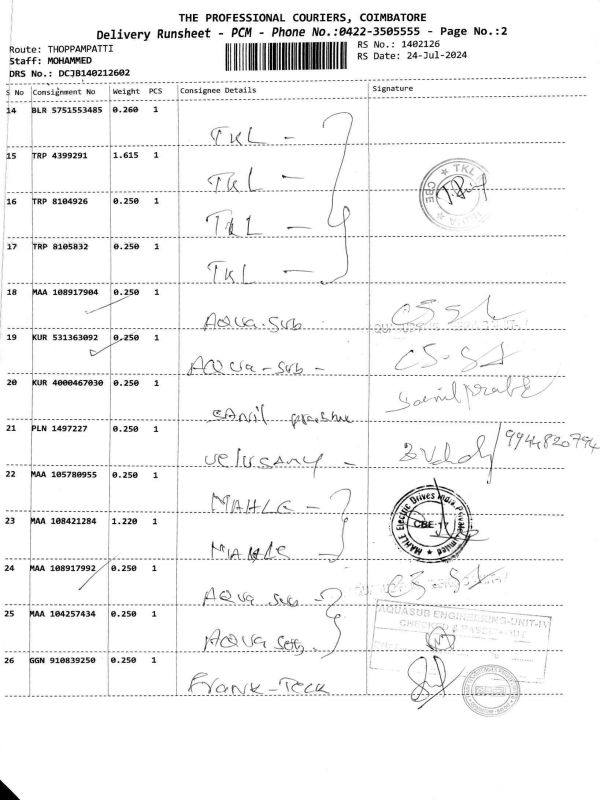 THE PROFESSIONAL COURIERS, COIMBATORE
Delivery Runsheet - PCM - Phone No.:0422-3505555 - Page No.:2
Route: THOPPAMPATTI
Staff: MOHAMMED
DRS No.: DCJB140212602
RS No.: 1402126
RS Date: 24-Jul-2024
S No Consignment No Weight PCS Consignee Details Signature
14 BLR 5751553485 0.260 1
TKL -
15 TRP 4399291 1.615 1
TKL -
TKL
CBE
INDIA
16 TRP 8104926 0.250 1
TKL -
17 TRP 8105832 0.250 1
TKL -
18 MAA 108917904 0.250 1
AQUA-SUB
19 KUR 531363092 0.250 1
AQUA-SUB-
20 KUR 4000467030 0.250 1
21 PLN 1497227 0.250 1
velusamy - 9944820794
22 MAA 105780955 0.250 1
MAHLE -
23 MAA 108421284 1.220 1
MAHLE
MAHLE Electric Drives India Private Limited
CBE-17
24 MAA 108917992 0.250 1
AQUA SUB -
25 MAA 104257434 0.250 1
AQUA
AQUASUB ENGINEERING-UNIT-IV
26 GGN 910839250 0.250 1
FRANK-TECK